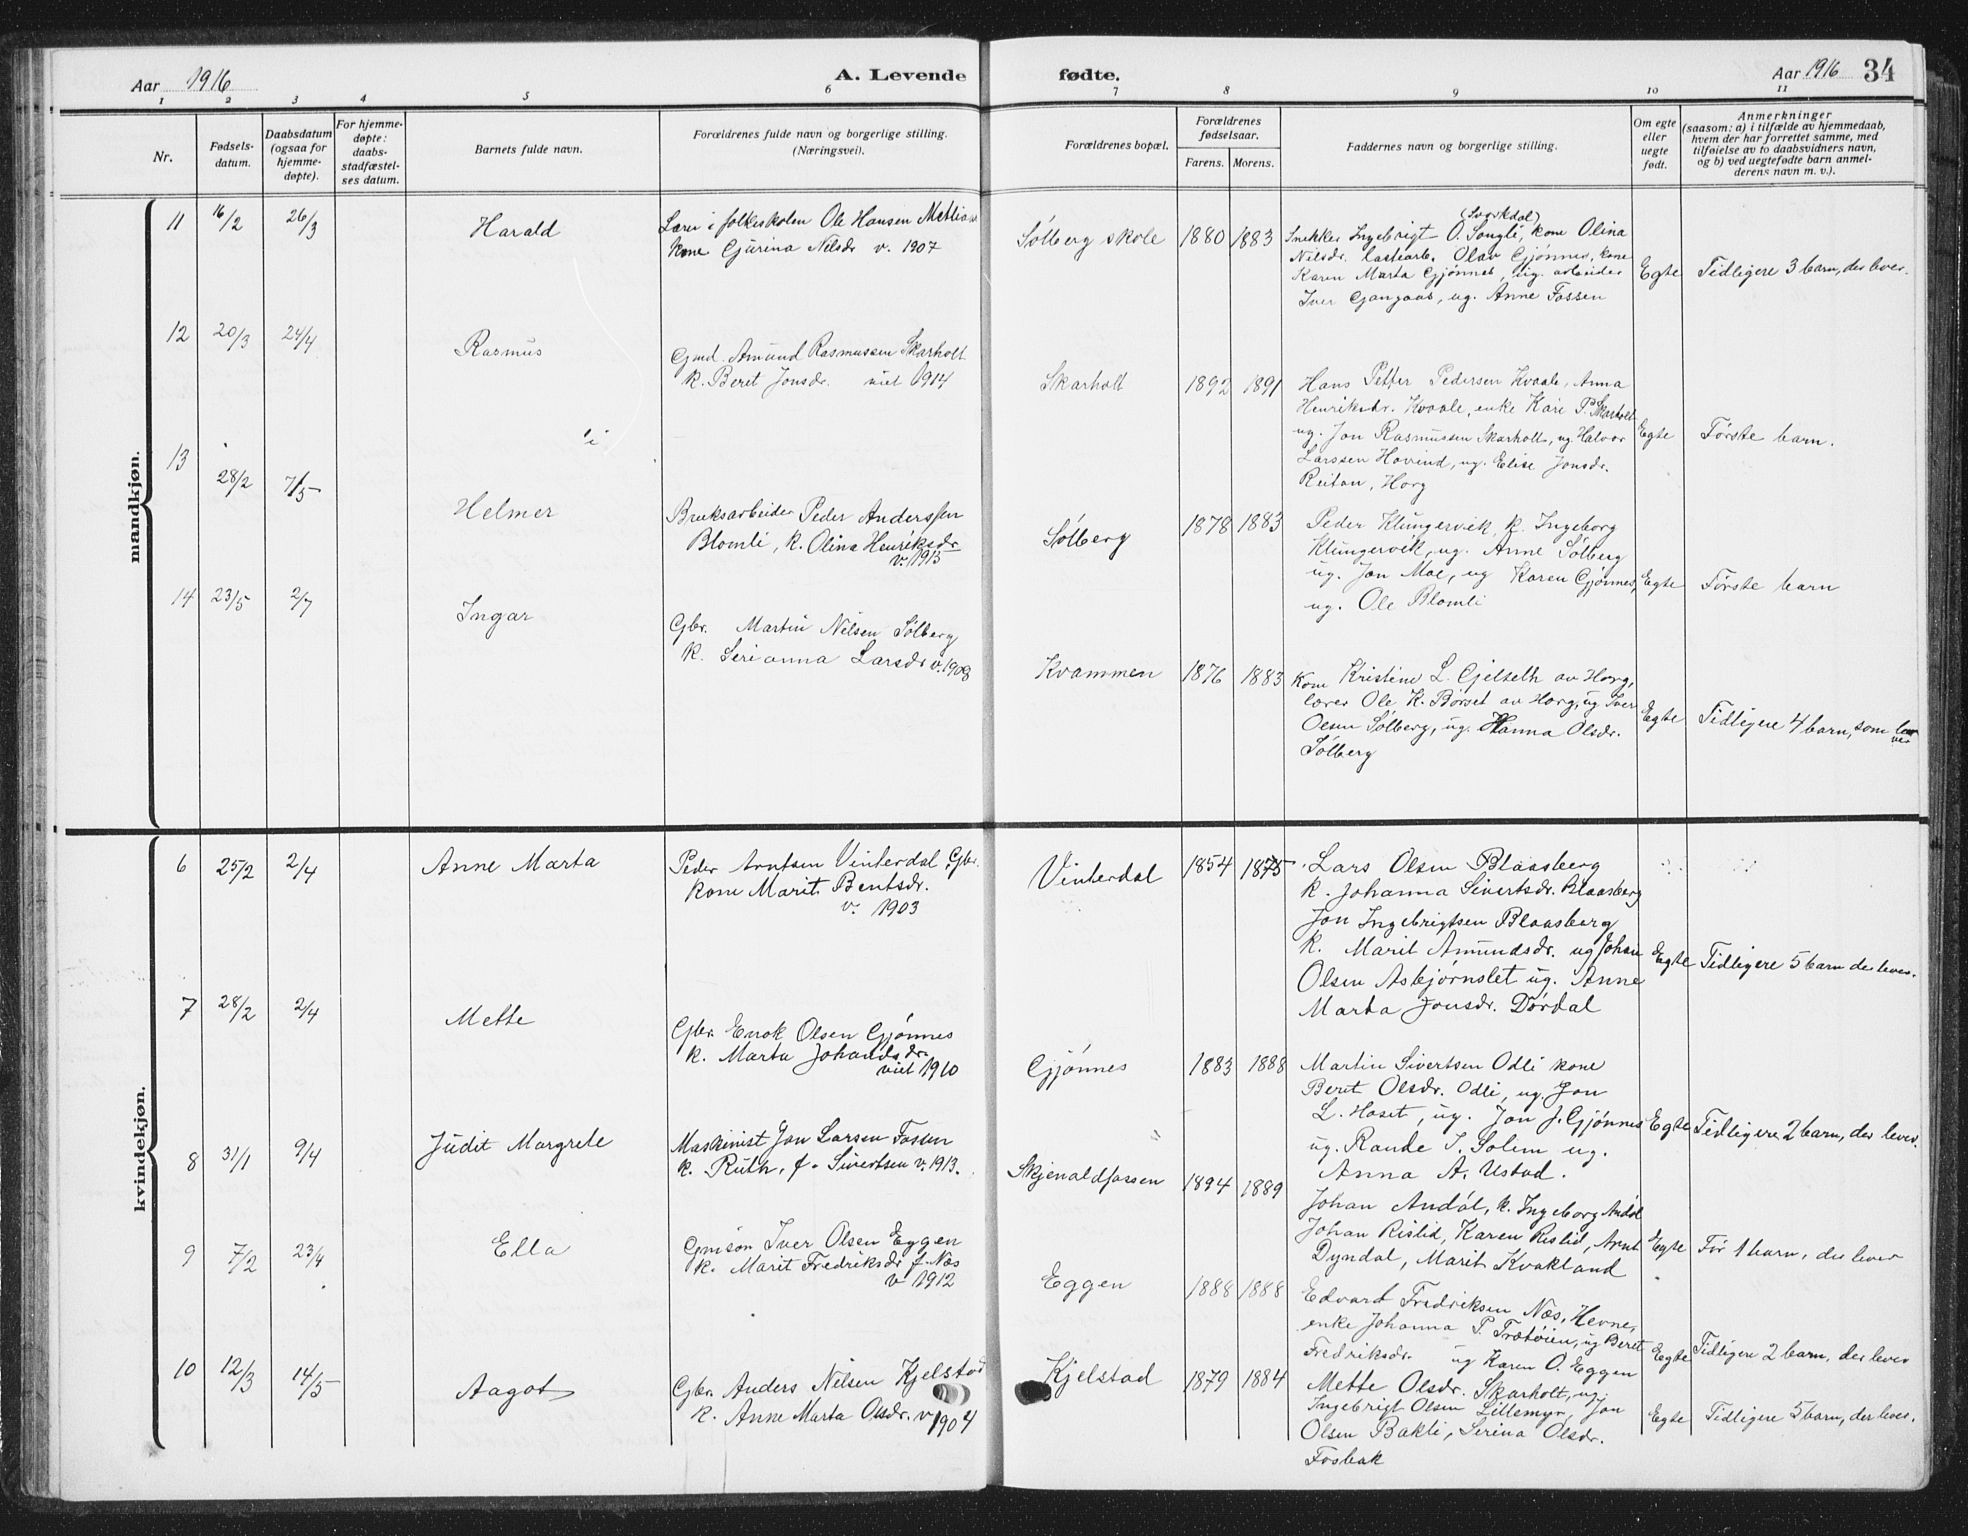 Aar 1916
A. Levende
fødte.
Aar 1916 34
1 2 3 4 5 6 7 8 9 10 11
Nr.
Fødsels-
datum.
Daabsdatum
(ogsaa for
hjemme-
døpte).
For hjemme-
døpte:
daabs-
stadfæstel-
ses datum.
Barnets fulde navn.
Forældrenes fulde navn og borgerlige stilling.
(Næringsvei).
Forældrenes bopæl.
Forældrenes
fødselsaar.
Farens. Morens.
Faddernes navn og borgerlige stilling.
Om egte
eller
uegte
født.
Anmerkninger
(saasom: a) i tilfælde av hjemmedaab,
hvem der har forrettet samme, med
tilføielse av to daabsvidners navn,
og b) ved uegtefødte barn anmel-
derens navn m. v.).
mandkjøn.
11 16/2 26/3 Harald
Lærer i folkeskolen Ole Hansen
kone Gjurina Nelsdr v. 1907
Sølberg skole 1880 1883
Snekker Ingebrigt O. Songli, kone Olina
Nilsdr. Olav Gjønnes, kone
Karen Marta Gjønnes, ug. arbeider
Iver Gangaas, ug. Anne Fossen
Egte Tidligere 3 barn, der lever.
12 20/3 24/4 Rasmus
Gmd. Amund Rasmussen Skarholt
k. Beret Jonsdr. viet 1914
Skarholt 1892 1891
Hans Petter Pedersen Kvaale, Anna
Henriksdr. Kvaale, enke Kari P. Skarholt
ug. Jon Rasmussen Skarholt, ug. Halvor
Larssen Hovind, ug. Elise Jonsdr.
Reitan, Horg
Egte Første barn.
13 28/2 7/5 Helmer
Bruksarbeider Peder Anderssen
Blomli, k. Olina Henriksdr
v. 1913
Sølberg 1878 1883
Peder Klungervik, k. Ingeborg
Klungervik, ug. Anne Sølberg
ug. Jon Moe, ug Karen Gjønnes,
ug. Ole Blomli
Egte Første barn
14 23/5 2/7 Ingar
Gbr. Martin Nilsen Sølberg
k. Serianna Larsdr v. 1908
Kvammen 1876 1883
Kone Kristine L. Gjelseth av Horg,
lærer Ole K. Børset av Horg, ug Iver
Olsen Sølberg, ug. Hanna Olsdr.
Sølberg
Egte Tidligere 4 barn, som lever
kvindekjøn.
6 25/2 2/4 Anne Marta
Peder Arntsen Vinterdal, Gbr.
kone Marit Bentsdr.
v. 1903
Vinterdal 1854 1875
Lars Olsen Blaasberg
k. Johanna Sivertsdr. Blaasberg
Jon Ingebrigtsen Blaasberg
k. Marit Amundsdr. ug Johan
Olsen Asbjørnslet ug. Anne
Marta Jonsdr. Dørdal
Egte Tidligere 5 barn der lever.
7 28/2 2/4 Mette
Gbr. Enok Olsen Gjønnes
k. Marta Johansdr.
viet 1910
Gjønnes 1883 1888
Martin Sivertsen Odli kone
Beret Olsdr. Odli, ug. Jon
L. Hoset, ug. Jon J. Gjønnes
ug. Rande I. Solem ug.
Anna A. Ustad.
Egte Tidligere 2 barn, der lever.
8 31/1 9/4 Judit Margrete
Maskinist Jon Larsen Fossen
k. Ruth, f. Sivertsen v. 1913.
Skjenaldfossen 1894 1889
Johan Andøl, k. Ingeborg Andøl
Johan Rislid, Karen Rislid, Arnt
Dyndal, Marit Kvakland
Egte Før 1 barn, der lever
9 7/2 23/4 Ella
Gmson Iver Olsen Eggen
k. Marit Fredriksdr f. Næs
v 1912
Eggen 1888 1888
Edvard Fredriksen Næs, Hevne,
enke Johanna P. Trøtøien, ug Beret
Fredriksdr. ug Karen O. Eggen
Egte Tidligere 2 barn, der lever
10 12/3 14/5 Aagot
Gbr. Anders Nilsen Kjelstad
k. Anne Marta Olsdr. v 1904
Kjelstad 1879 1884
Mette Olsdr. Skarholt, ug.
Ingebrigt Olsen Lillemyr, Jon
Olsen Bakli, Serina Olsdr.
Fosbak
Egte Tidligere 5 barn, der lever.